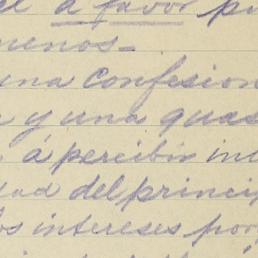 a favor
menos-
una confesion
y una quas
á percibir in
dad del princi
os intereses por